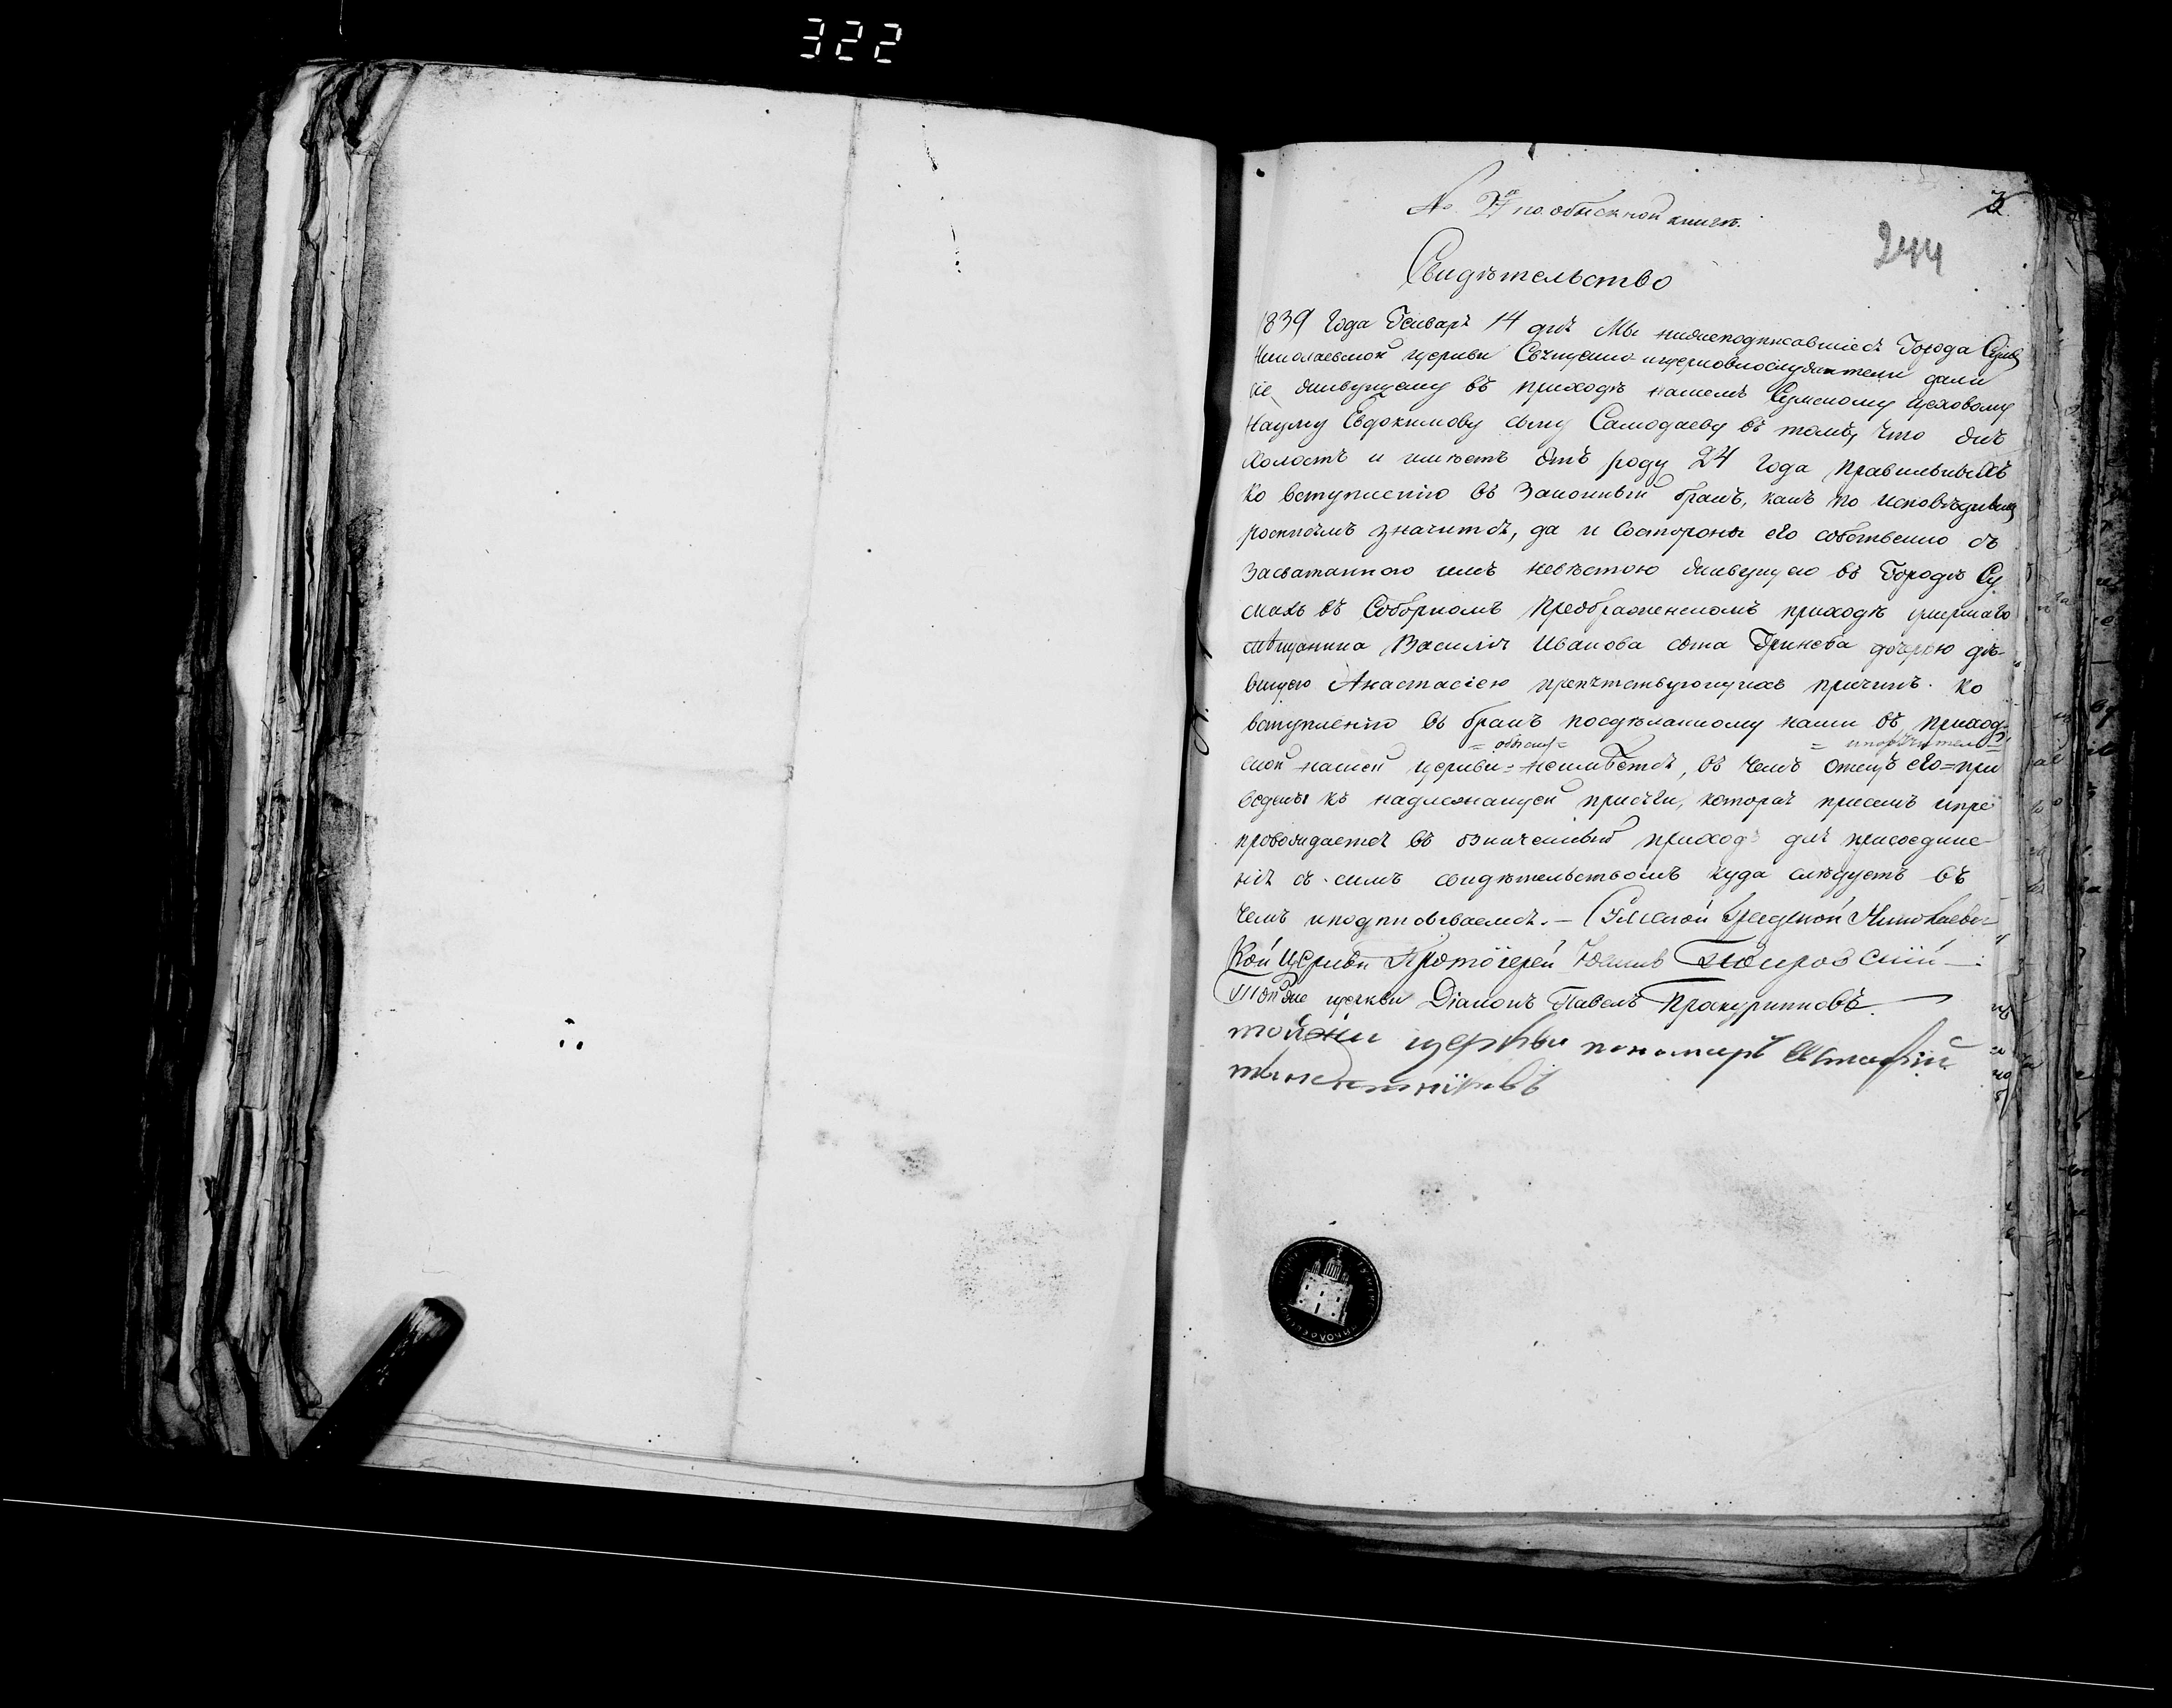 322
3
№ 2й по обыскной книгѣ.
244
Свидѣтельство
1839 Года Генваря 14 дня Мы нижеподписавшіеся Города Сумъ
Николаевской церкви Священно и церковнослужители дали
сіе жильвущему въ приходѣ нашемъ Сумскому цеховому
Науму Евдокимову сыну Самодаеву въ томъ, что онъ
холостъ и имѣетъ отъ роду 24 года правильныхъ
ко вступленію въ законный бракъ, какъ по исповѣднымъ
росписямъ значится, да и состороны его собственно съ
засватанною имъ невѣстою жильвущею въ Городѣ Су
махъ въ Соборномъ Преображенскомъ приходѣ умершаго
мѣщанина Василія Иванова сына Гринева дочерью дѣ-
вицею Анастасіею препятствующихъ причинъ ко
вступленію въ бракъ посдѣланному нами въ приход-
= обыску = = и поручители =
ской нашей церкви = неимѣется, въ чемъ отецъ его = при
ведены къ надлежащей присяги, которая присемъ и пре
провождается въ означенный приходъ для присоедине
нія съ симъ свидѣтельствомъ куда слѣдуетъ въ
чемъ и подписываемся. — Сумской Градской Николаевс-
кой Церкви Протоіерей
Той же церкви Діаконъ Павелъ Прокурниковъ
той жи церкви пономарь Евстафій